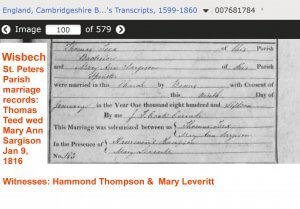 England, Cambridgeshire B...'s Transcripts, 1599-1860 007681784
Image 100 of 579
Wisbech
St. Peters
Parish
marriage
records:
Thomas
Teed wed
Mary Ann
Sargison
Jan 9,
1816
Thomas Teed of this Parish
Bachelor
and Mary Ann Sargison of this Parish
Spinster
were married in this Church by Banns with Consent of
this Ninth Day of
January in the Year One thousand eight hundred and Sixteen
By me
This Marriage was solemnized between us Thomas Teed
Mary Ann Sargison
In the Presence of Hammond Thompson
Mary Leveritt
No.
Witnesses: Hammond Thompson & Mary Leveritt